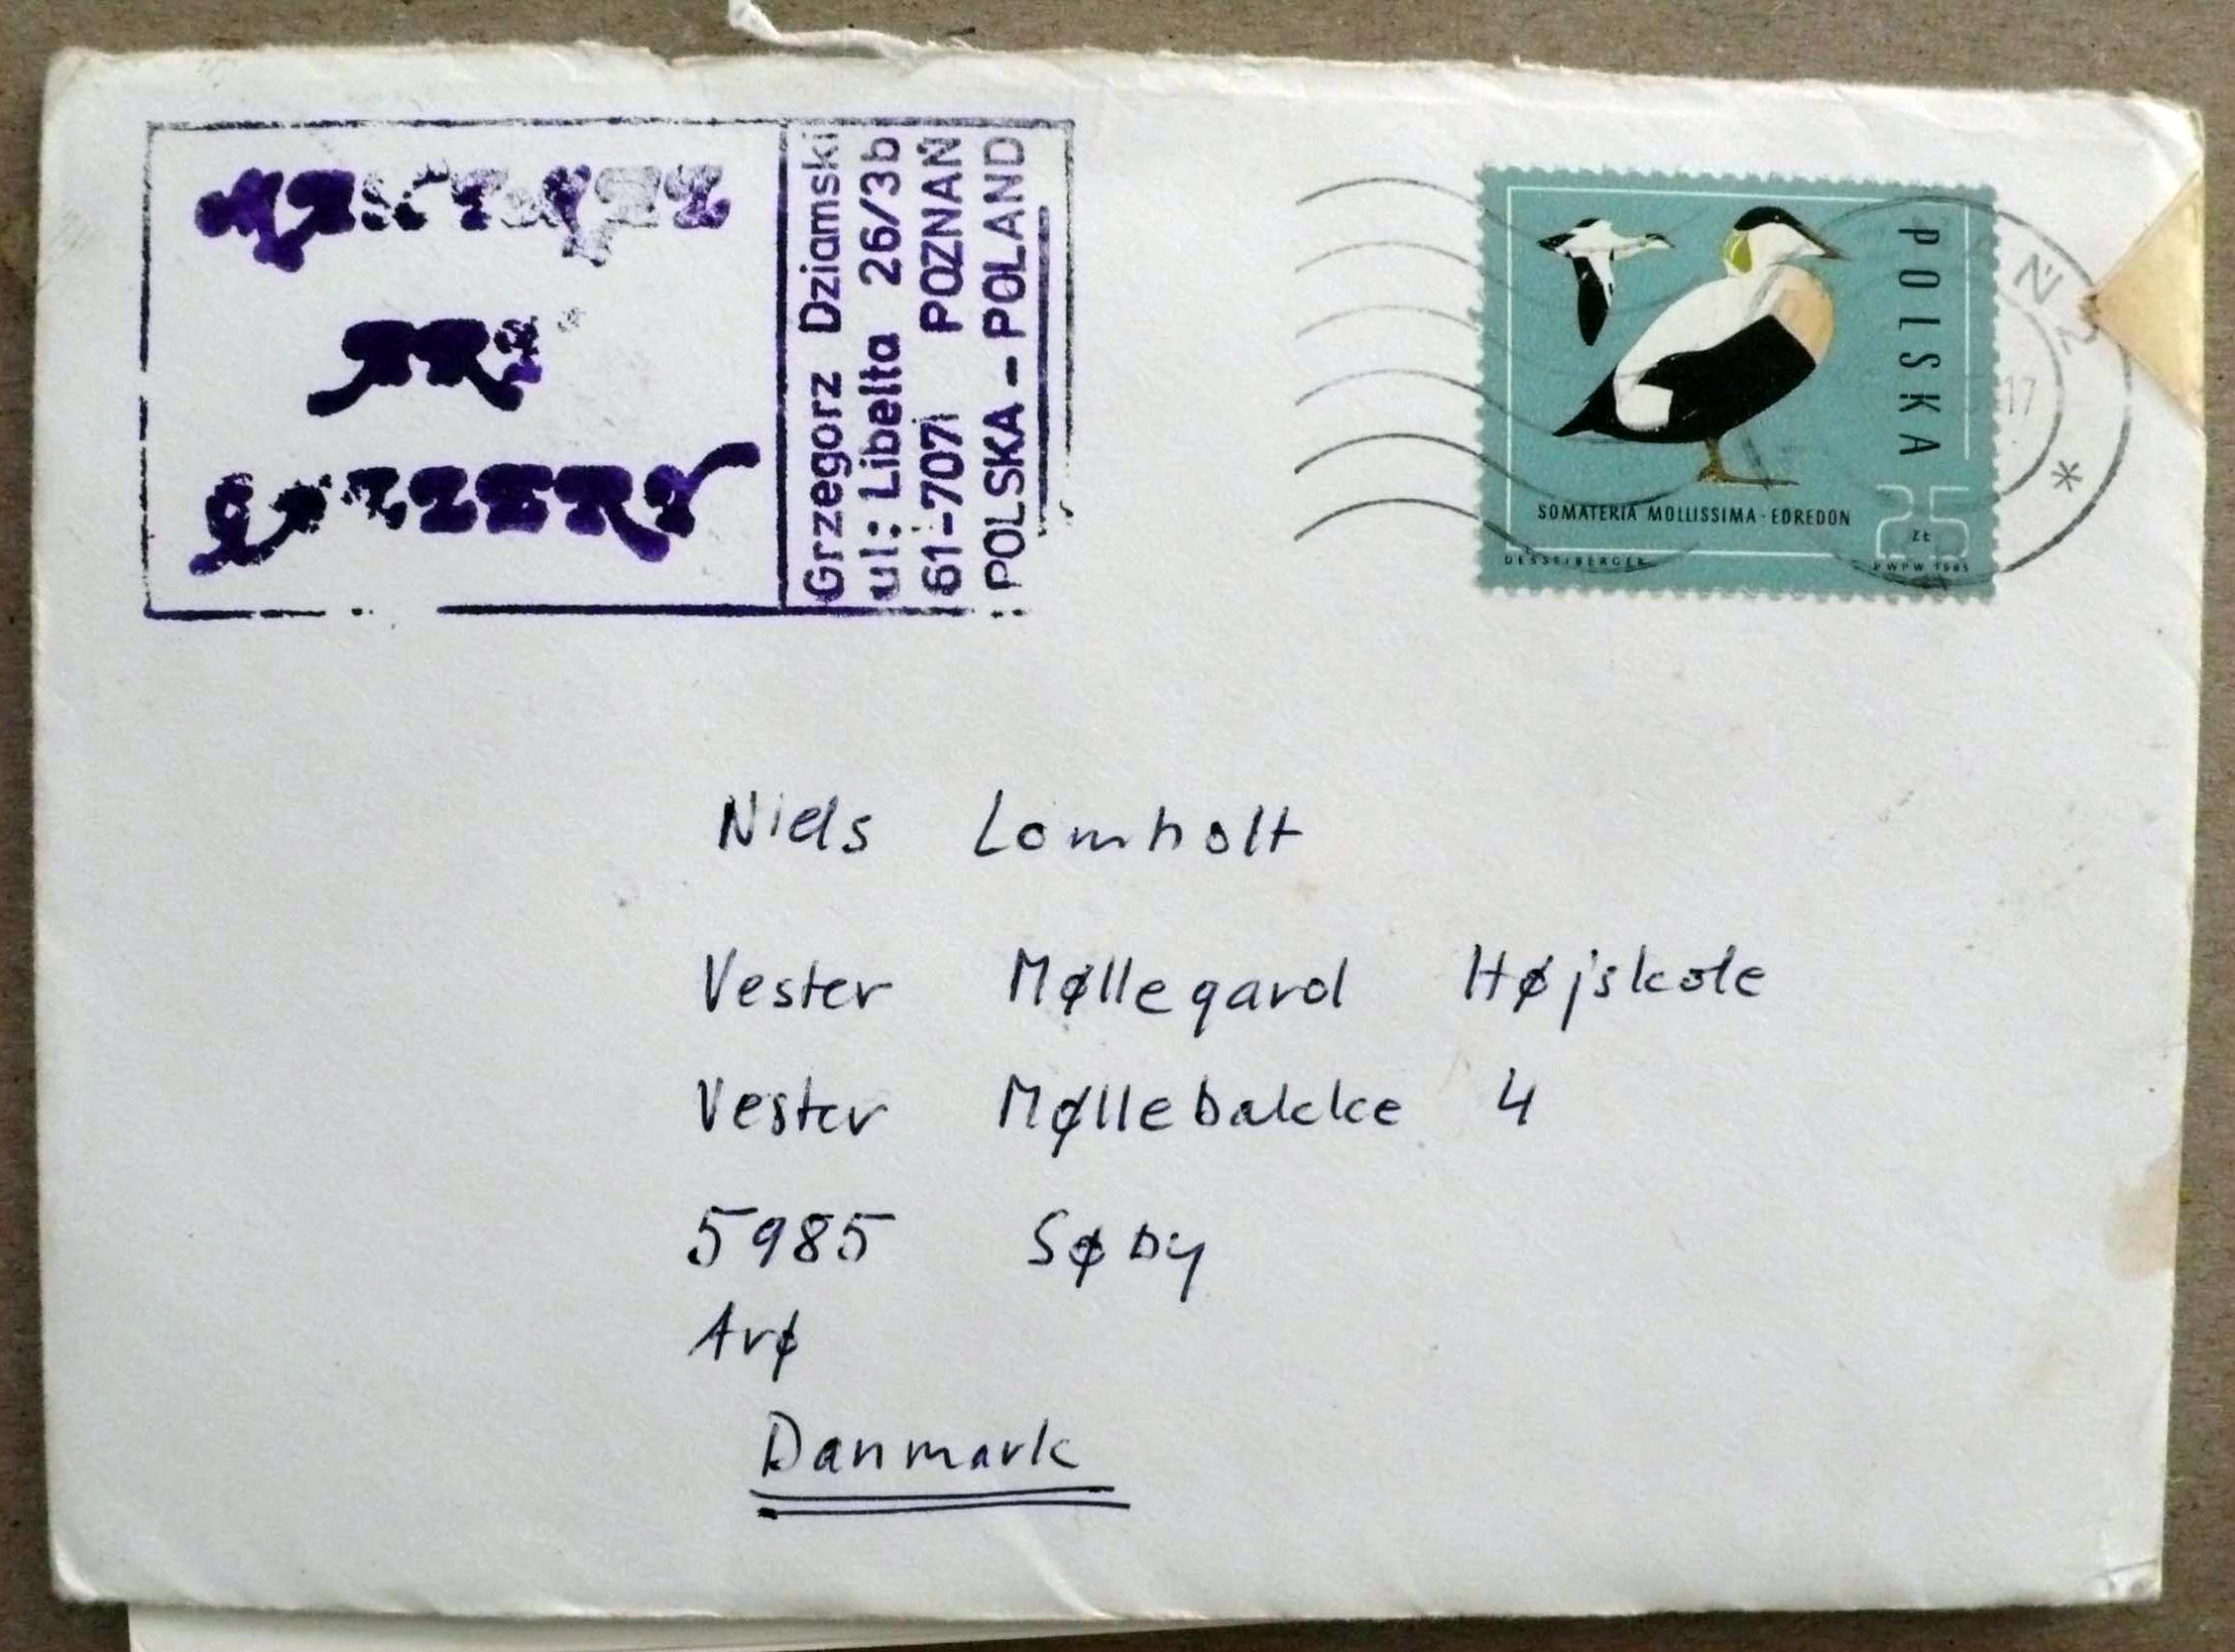 Grzegorz Dziamski
ul: Libelta 26/3b
61-707 POZNAŃ
POLSKA - POLAND
POLSKA
SOMATERIA MOLLISSIMA · EDREDON
25
ZŁ
PWPW 1985
17
Niels Lomholt
Vester Møllegard Højskole
Vester Møllebakke 4
5985 Søby
Arø
Danmark